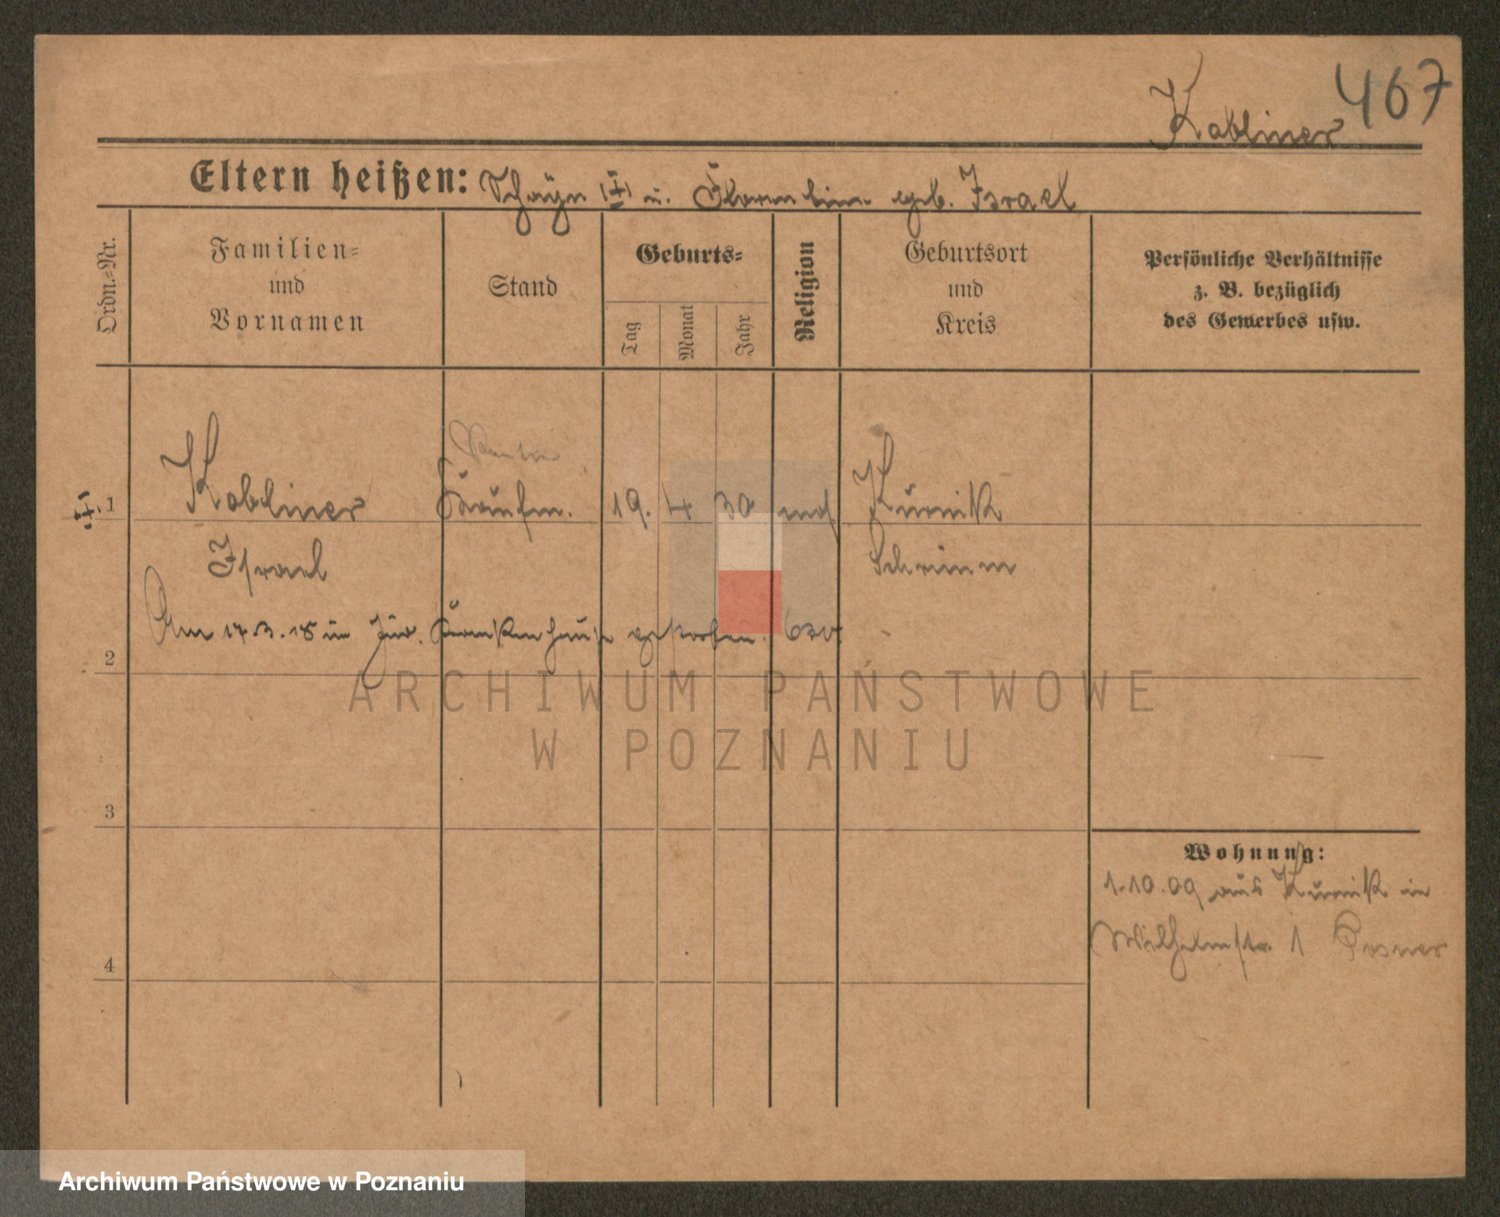 467
Kabliner
Eltern heißen: u. geb. Israel
Ordn.-Nr.
Familien-
und
Vornamen
Stand
Geburts-
Tag
Monat
Jahr
Religion
Geburtsort
und
Kreis
Persönliche Verhältnisse
z. B. bezüglich
des Gewerbes usw.
1
Kabliner Kaufm. 19. 4 30 mos Kurnik
Israel Schrimm
Am 17.3.18 im jüd. Krankenhause gestorben.
2
3
4
Wohnung:
1.10.09 aus Kurnik in
Wilhelmstr. 1 Posner
ARCHIWUM PAŃSTWOWE
W POZNANIU
Archiwum Państwowe w Poznaniu